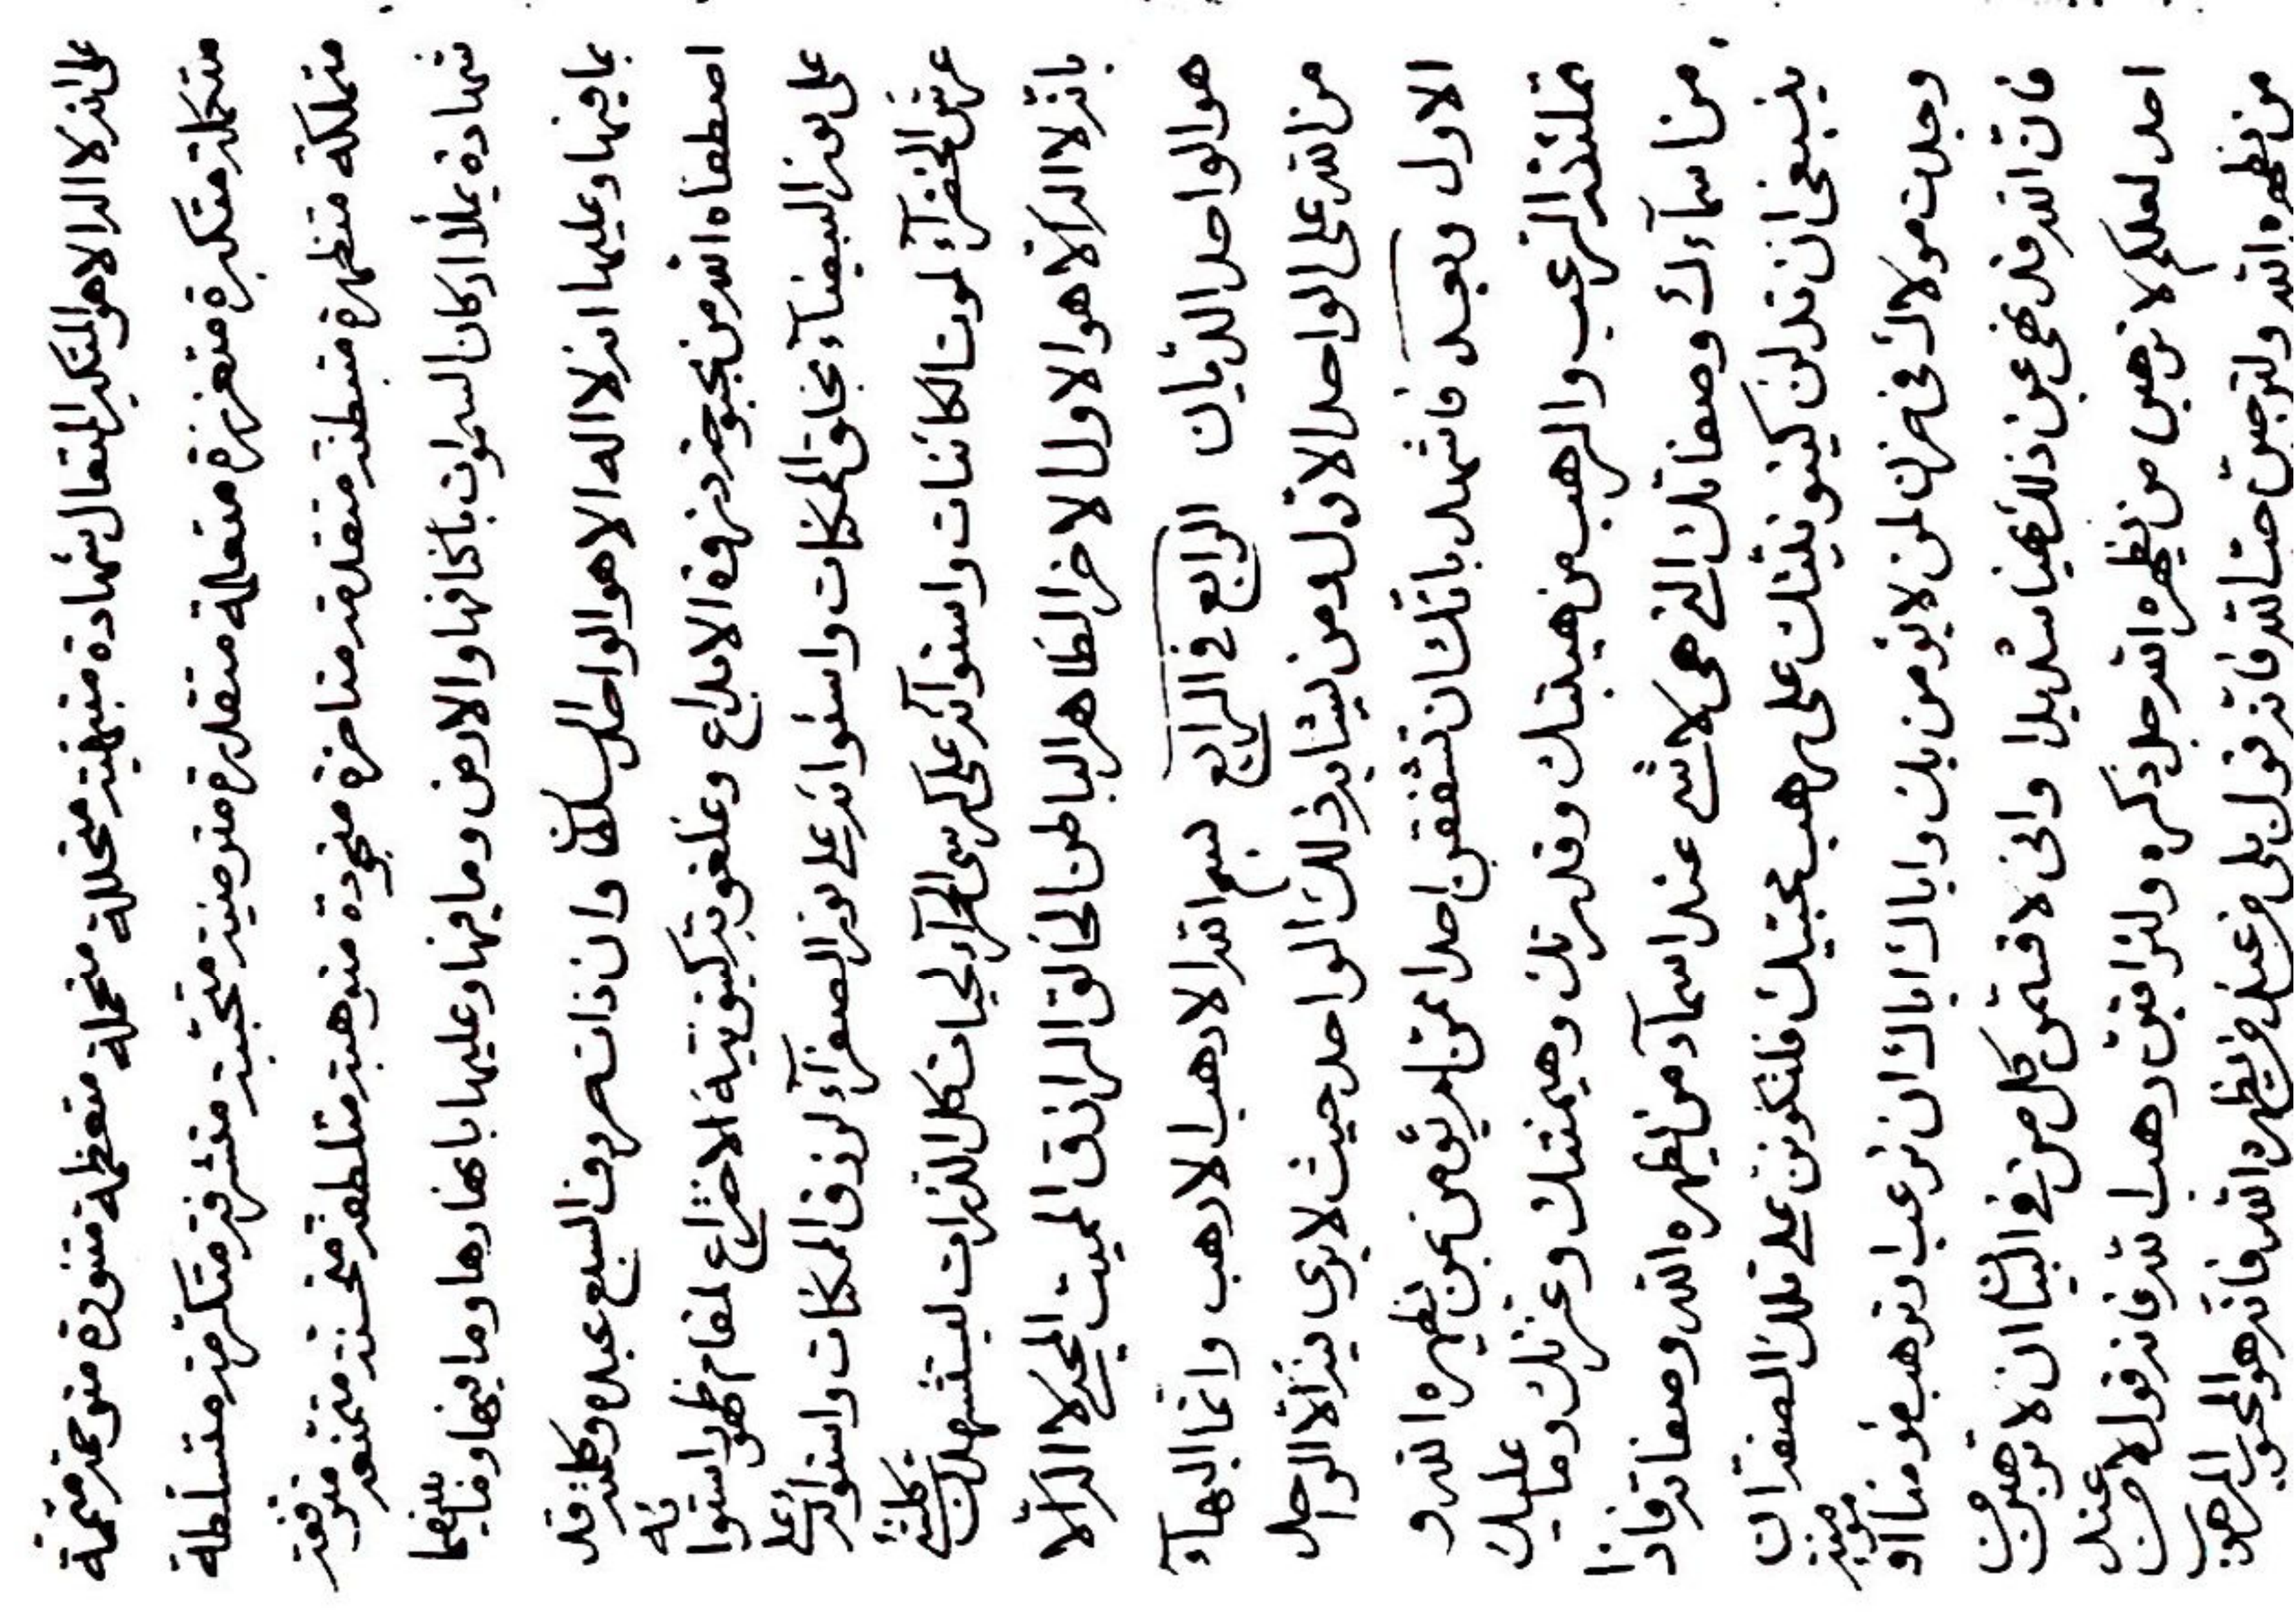 على انه لا اله الا هو المتكبر المتعال شهادة متبهية متجللة متجملة متعظمة متنورة متوحمة متممة
متكملة متكبرة متعززة متعلمة متقدرة مترضية متحببة متشرفة متكرمة متسلطة
متملكة متظهرة متبطنة متقدمة متاخرة متجودة متوهبة متلطفة متحسنة متمنعة متوقعة
شهادة يملأ اركان السموات باكنافها والارض وما فيها وعليها بابحارها وما فيها وما ينبغى
بما فيها وعليها انه لا اله الا هو الواحد السلطان وان ذات حروف السبع عبده وكلمته قد
اصطفاه الله من بحبوحة ذروة الابداع وعلغوتية كينونية الاختراع لمقام ظهور استوائه
على نور البيضاء بخلق الممكنات واستوائه على نور الصفراء لرزق الممكنات واستوائه على
عرش الخضراء لموت الكائنات واستوائه على كرسى الحمراء لحيات كل الذرات ليستشهدن كلشئ
بانه لا اله الا هو الاول الاخر الظاهر الباطن الخالق الرازق المميت المحيى لا اله الا
هو الواحد الديان الرابع فى الرابع بسم الله الارهب الارهب وانما البهآء
من الله على الواحد الاول ومن يشابه ذلك الواحد حيث لا يرى فيه الا الواحد
الاول وبعد فاشهد بانك ان تشفقن احدا ممن لم يؤمن بمن يظهره الله و
تملئنه الرعب والرهب من هيبتك وقدرتك وهيمنتك وعزتك وما عليك
من اسماءك وصفاتك التى هى لا شئ عند اسمآء من يظهره الله وصفاته فاذا
ينبغى ان تدلن كينونيتك على رهب محبتك فلتكونن على تلك الصفة ان
وجدت مولاك فى حزن لمن لا يؤمن بك واياك اياك ان ترعب او ترهب مؤمنا او مؤمنة
فان الله قد نهى عن ذلك نهيا شديدا وانى لاقسمن كل من فى البيان ان لا ترهبن من
احد لعلكم لا ترهبن من يظهره الله جل ذكره ولتراقبن رهب الله فانه قول لا من عند
من يظهره الله ولترجبن حب الله فانه قول بلى من عند من يظهره الله فانه هو المحبوب المرهوب